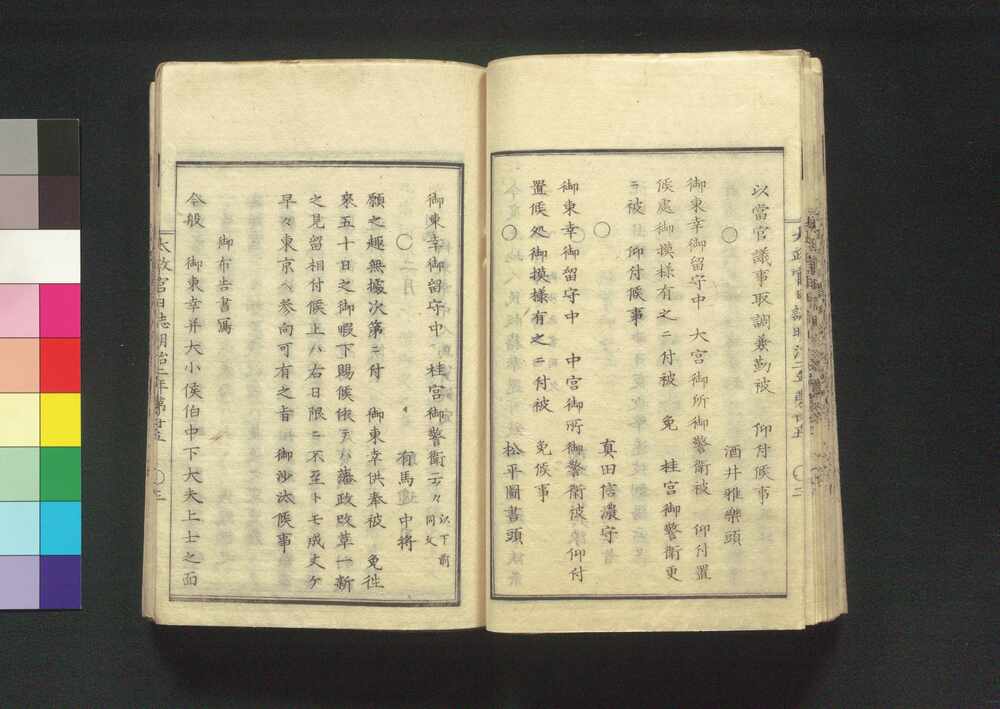 以當官議事取調兼勤被　仰付候事
酒井雅樂頭
○
御東幸御留守中　大宮御所御警衛被　仰付置
候處御摸様有之ニ付被　免　桂宮御警衛更
ニ被　仰付候事
真田信濃守
○
御東幸御留守中　中宮御所御警衛被　仰付
置候処御摸様有之ニ付被　免候事
○　松平圖書頭
御東幸御留守中　桂宮御警衛云々以下前同文
○　有馬中将
願之趣無據次第ニ付　御東幸供奉被　免徃
来五十日之御暇下賜候依テハ藩政改革一新
之見留相付候上ハ右日限ニ不至トモ成丈ケ
早々東京ヘ参向可有之旨　御沙汰候事
御布告書寫
今般　御東幸并大小侯伯中下大夫上士之面
太政官日誌明治二年第廿五　○三